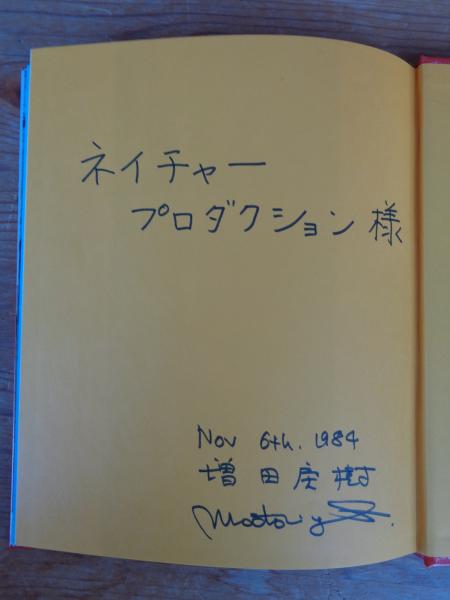 ネイチャー
プロダクション様
Nov 6th. 1984
増田戻樹